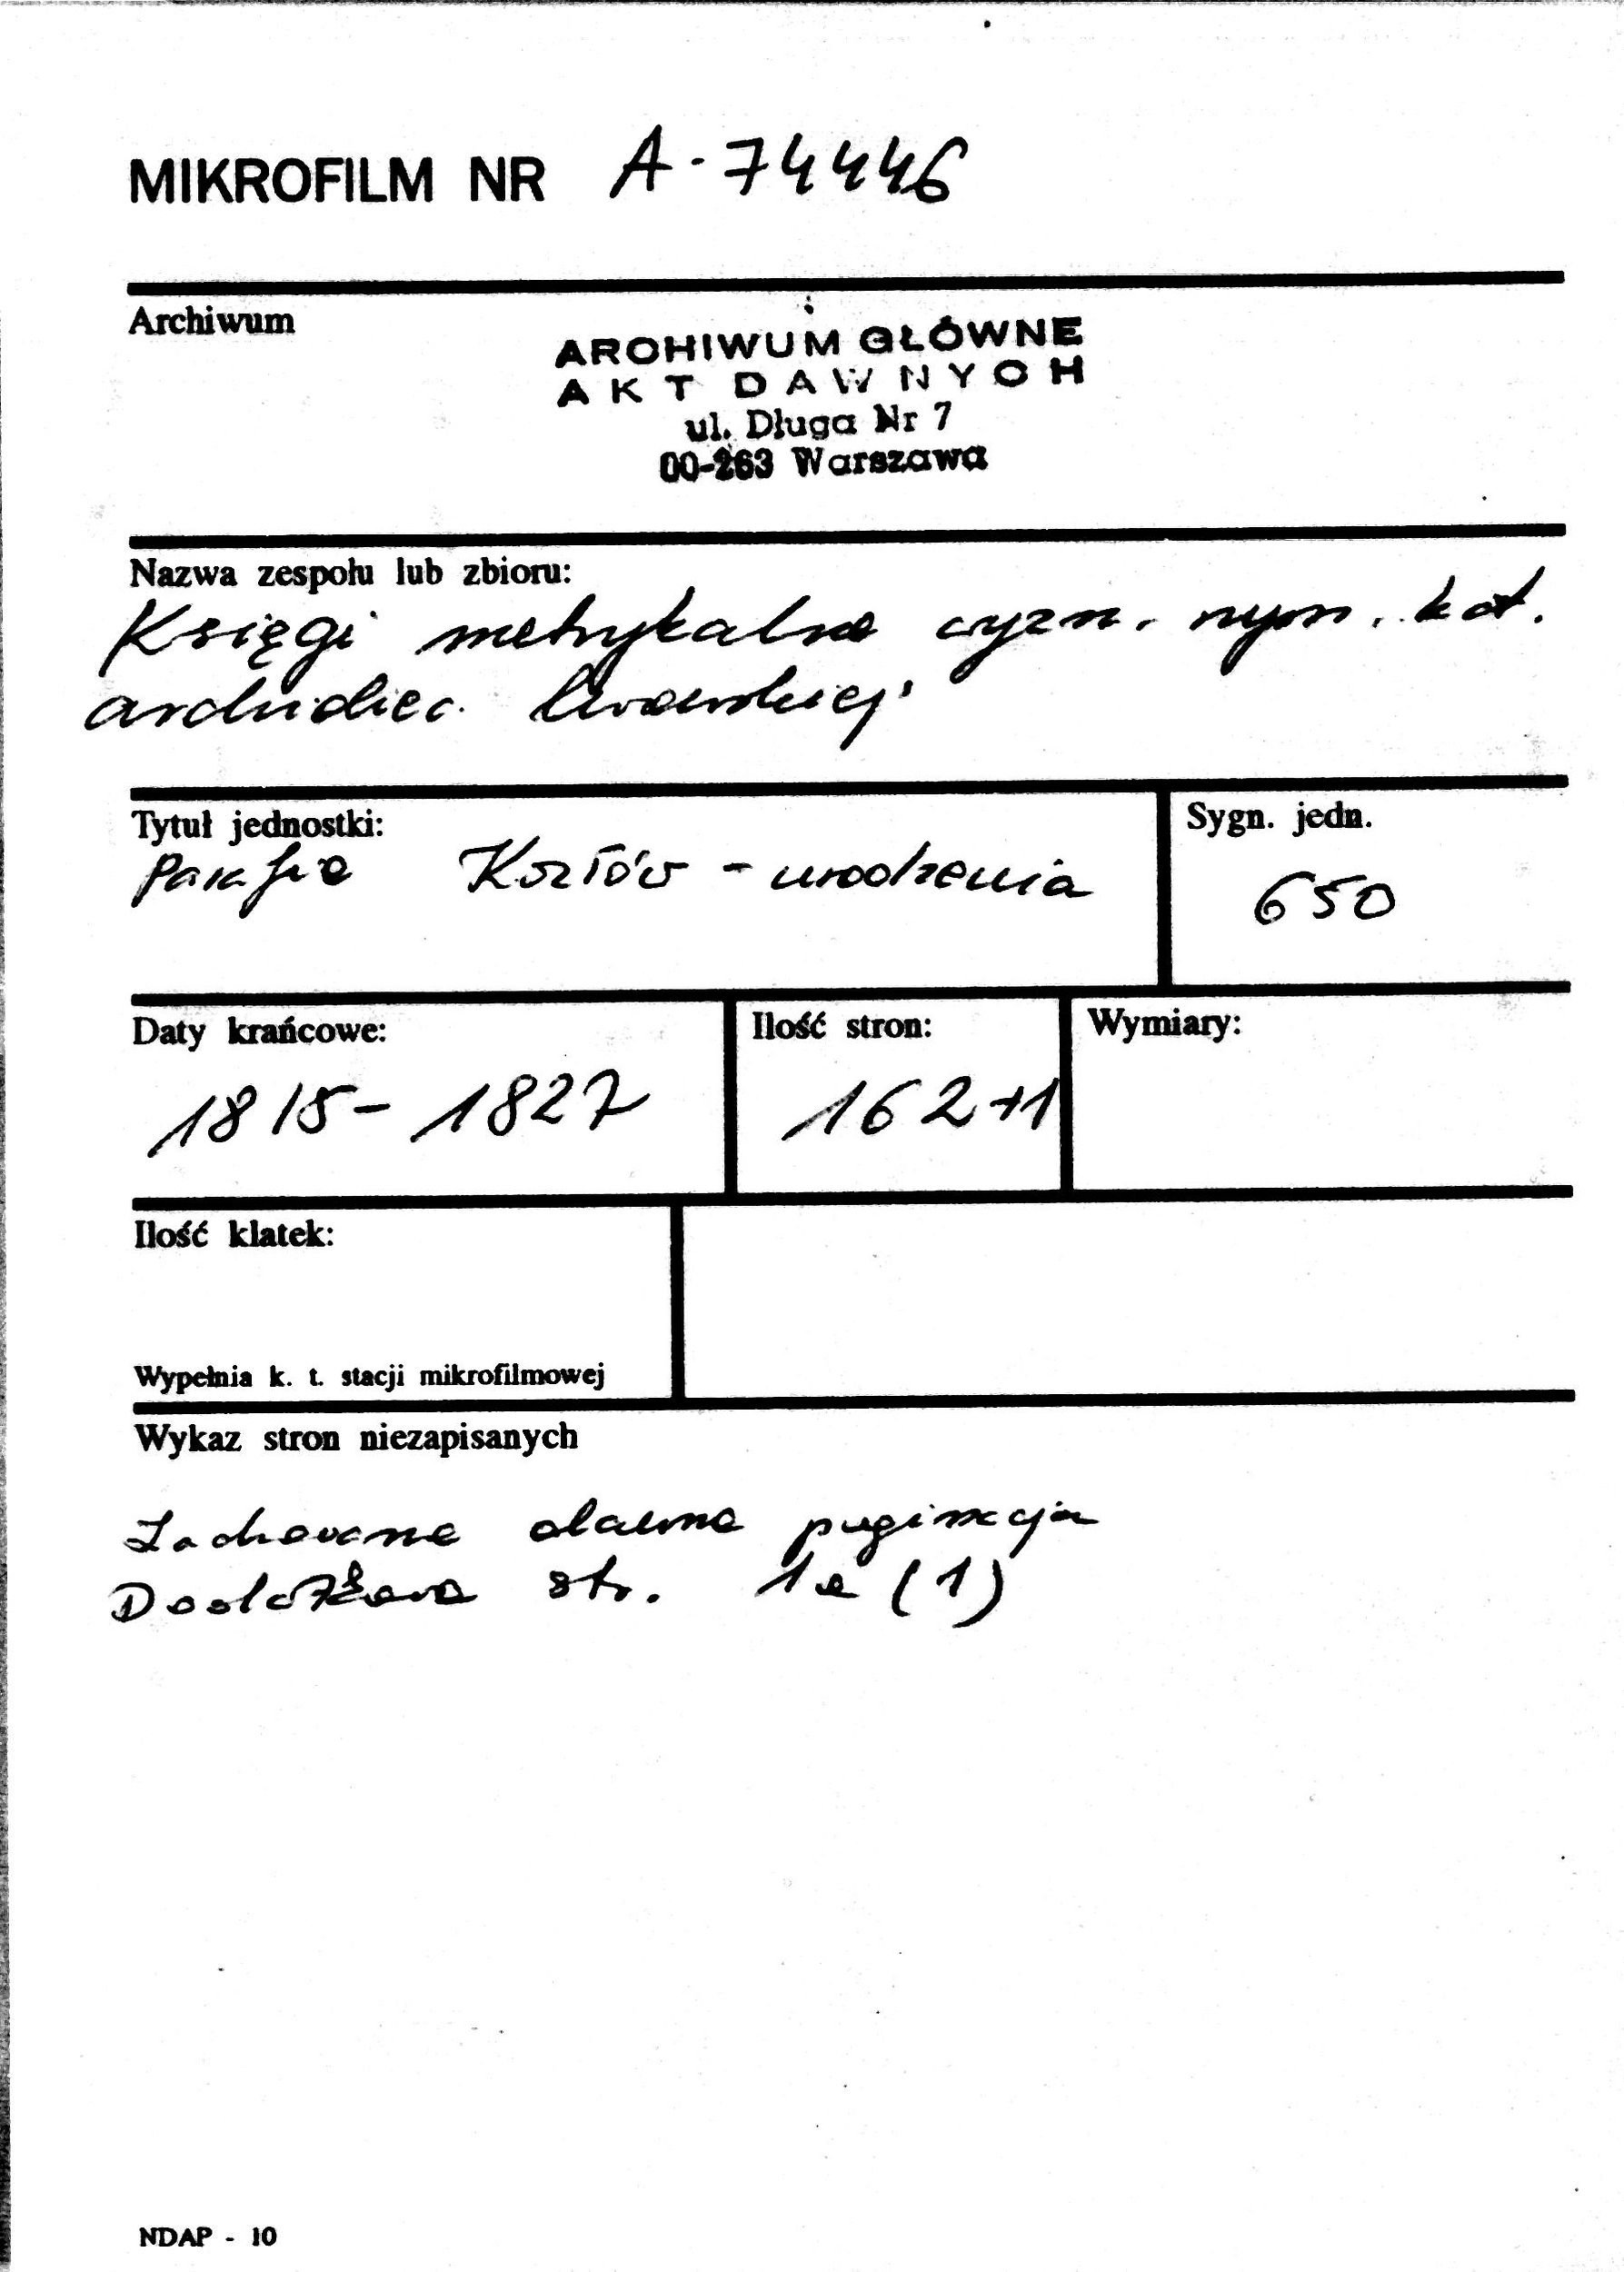 MIKROFILM NR A-74446
Archiwum
ARCHIWUM GŁÓWNE
AKT DAWNYCH
ul. Długa Nr 7
00-263 Warszawa
Nazwa zespołu lub zbioru:
Księgi metrykalne wyzn. rzym. kat.
archidiec. lwowskiej
Tytuł jednostki:
Parafia Kozłów - urodzenia
Sygn. jedn.
650
Daty krańcowe:
1815-1827
Ilość stron:
162+1
Wymiary:
Ilość klatek:
Wypełnia k. t. stacji mikrofilmowej
Wykaz stron niezapisanych
Zachowana dawna paginacja
str. 1a (1)
NDAP - 10